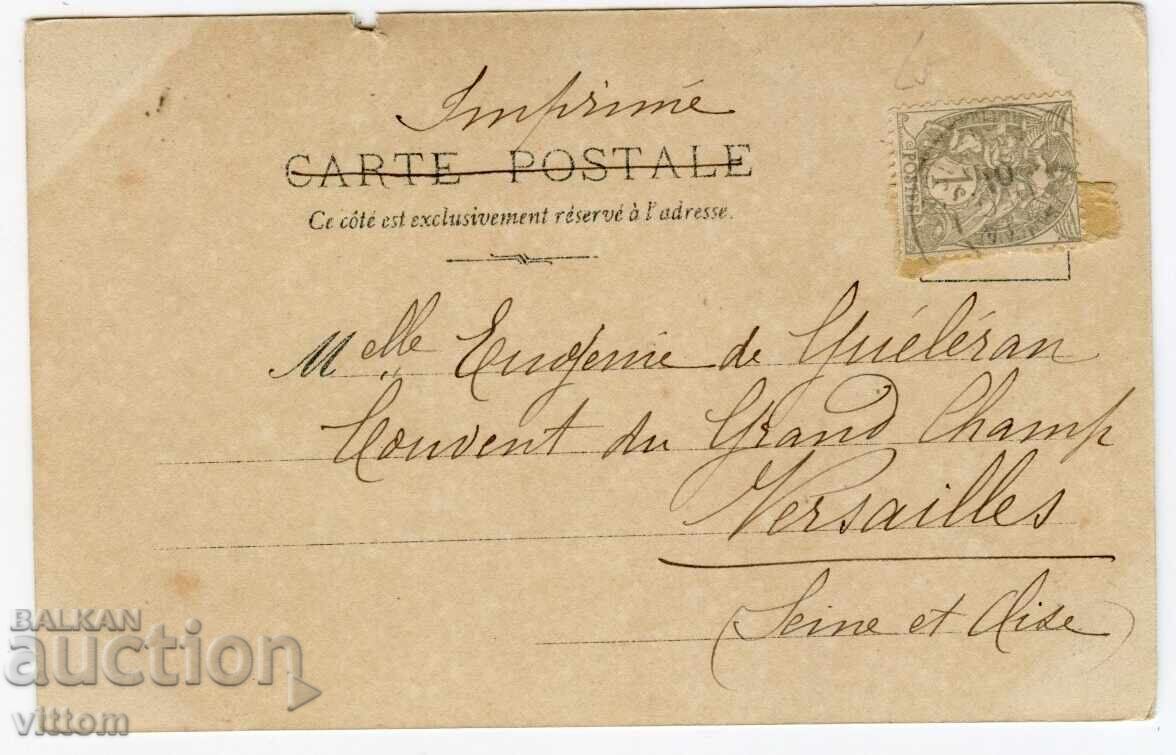 Imprimé
CARTE POSTALE
Ce côté est exclusivement réservé à l'adresse.
POSTES
1
Melle Eugénie de Guéléran
Couvent du Grand Champ
Versailles
(Seine et Oise)
BALKAN
auction
vittom